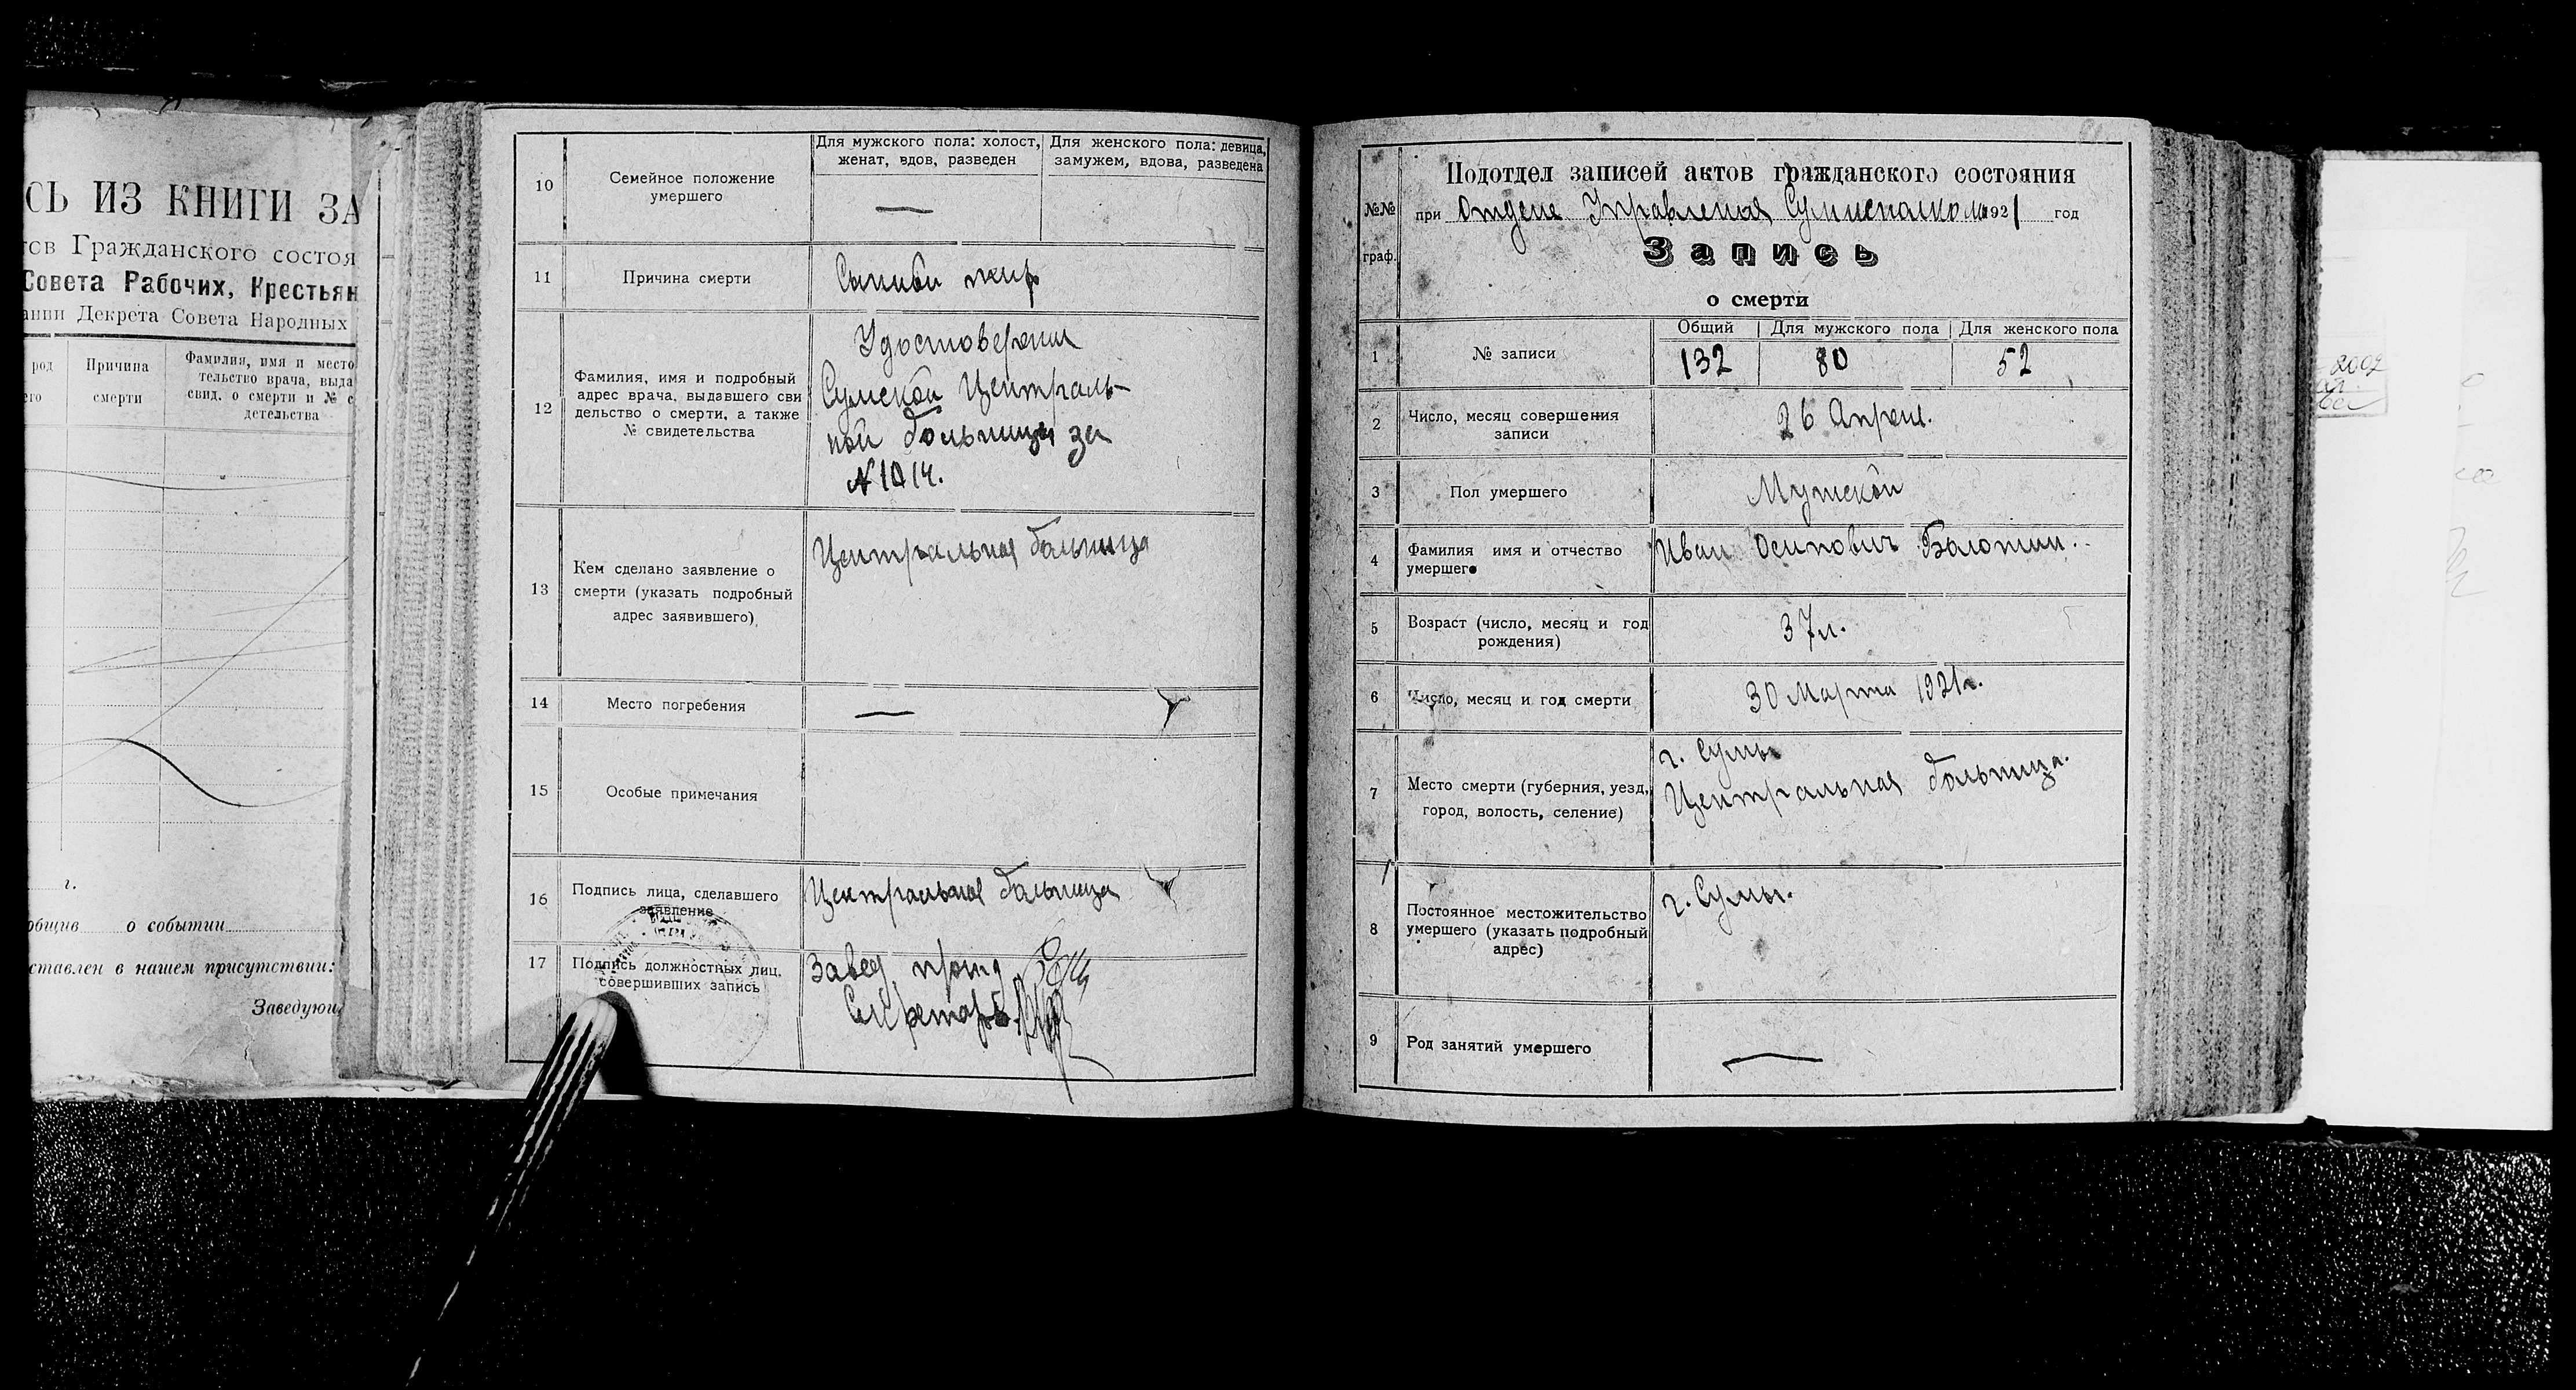 СЬ ИЗ КНИГИ ЗА
тов Гражданского состоя
Совета Рабочих, Крестьян
ании Декрета Совета Народных
род
его
Причина
смерти
Фамилия, имя и место
тельство врача, выда
свид. о смерти и № с
детельства
г.
общив о событии
ставлен в нашем присутствии:
Заведующ
10
Семейное положение
умершего
Для мужского пола: холост,
женат, вдов, разведен
Для женского пола: девица,
замужем, вдова, разведена
—
11
Причина смерти
Сыпной тиф
12
Фамилия, имя и подробный
адрес врача, выдавшего сви
дельство о смерти, а также
№ свидетельства
Удостоверения
Сумской Централь-
ной больницы за
№ 1014.
13
Кем сделано заявление о
смерти (указать подробный
адрес заявившего)
Центральная больница
14
Место погребения
—
15
Особые примечания
16
Подпись лица, сделавшего
заявление
Центральная больница
17
Подпись должностных лиц,
совершивших запись
Завед
Секретарь
№№
граф.
Подотдел записей актов гражданского состояния
при Отделе Управления Сумисполкома 1921 год
Запись
о смерти
1
№ записи
Общий
Для мужского пола
Для женского пола
132
80
52
2
Число, месяц совершения
записи
26 Апреля.
3
Пол умершего
Мужской
4
Фамилия имя и отчество
умершего
Иван Осипович Болотин.
5
Возраст (число, месяц и год
рождения)
37 л.
6
Число, месяц и год смерти
30 Марта 1921 г.
7
Место смерти (губерния, уезд,
город, волость, селение)
г. Сумы
Центральная больница.
8
Постоянное местожительство
умершего (указать подробный
адрес)
г. Сумы.
9
Род занятий умершего
—
2002